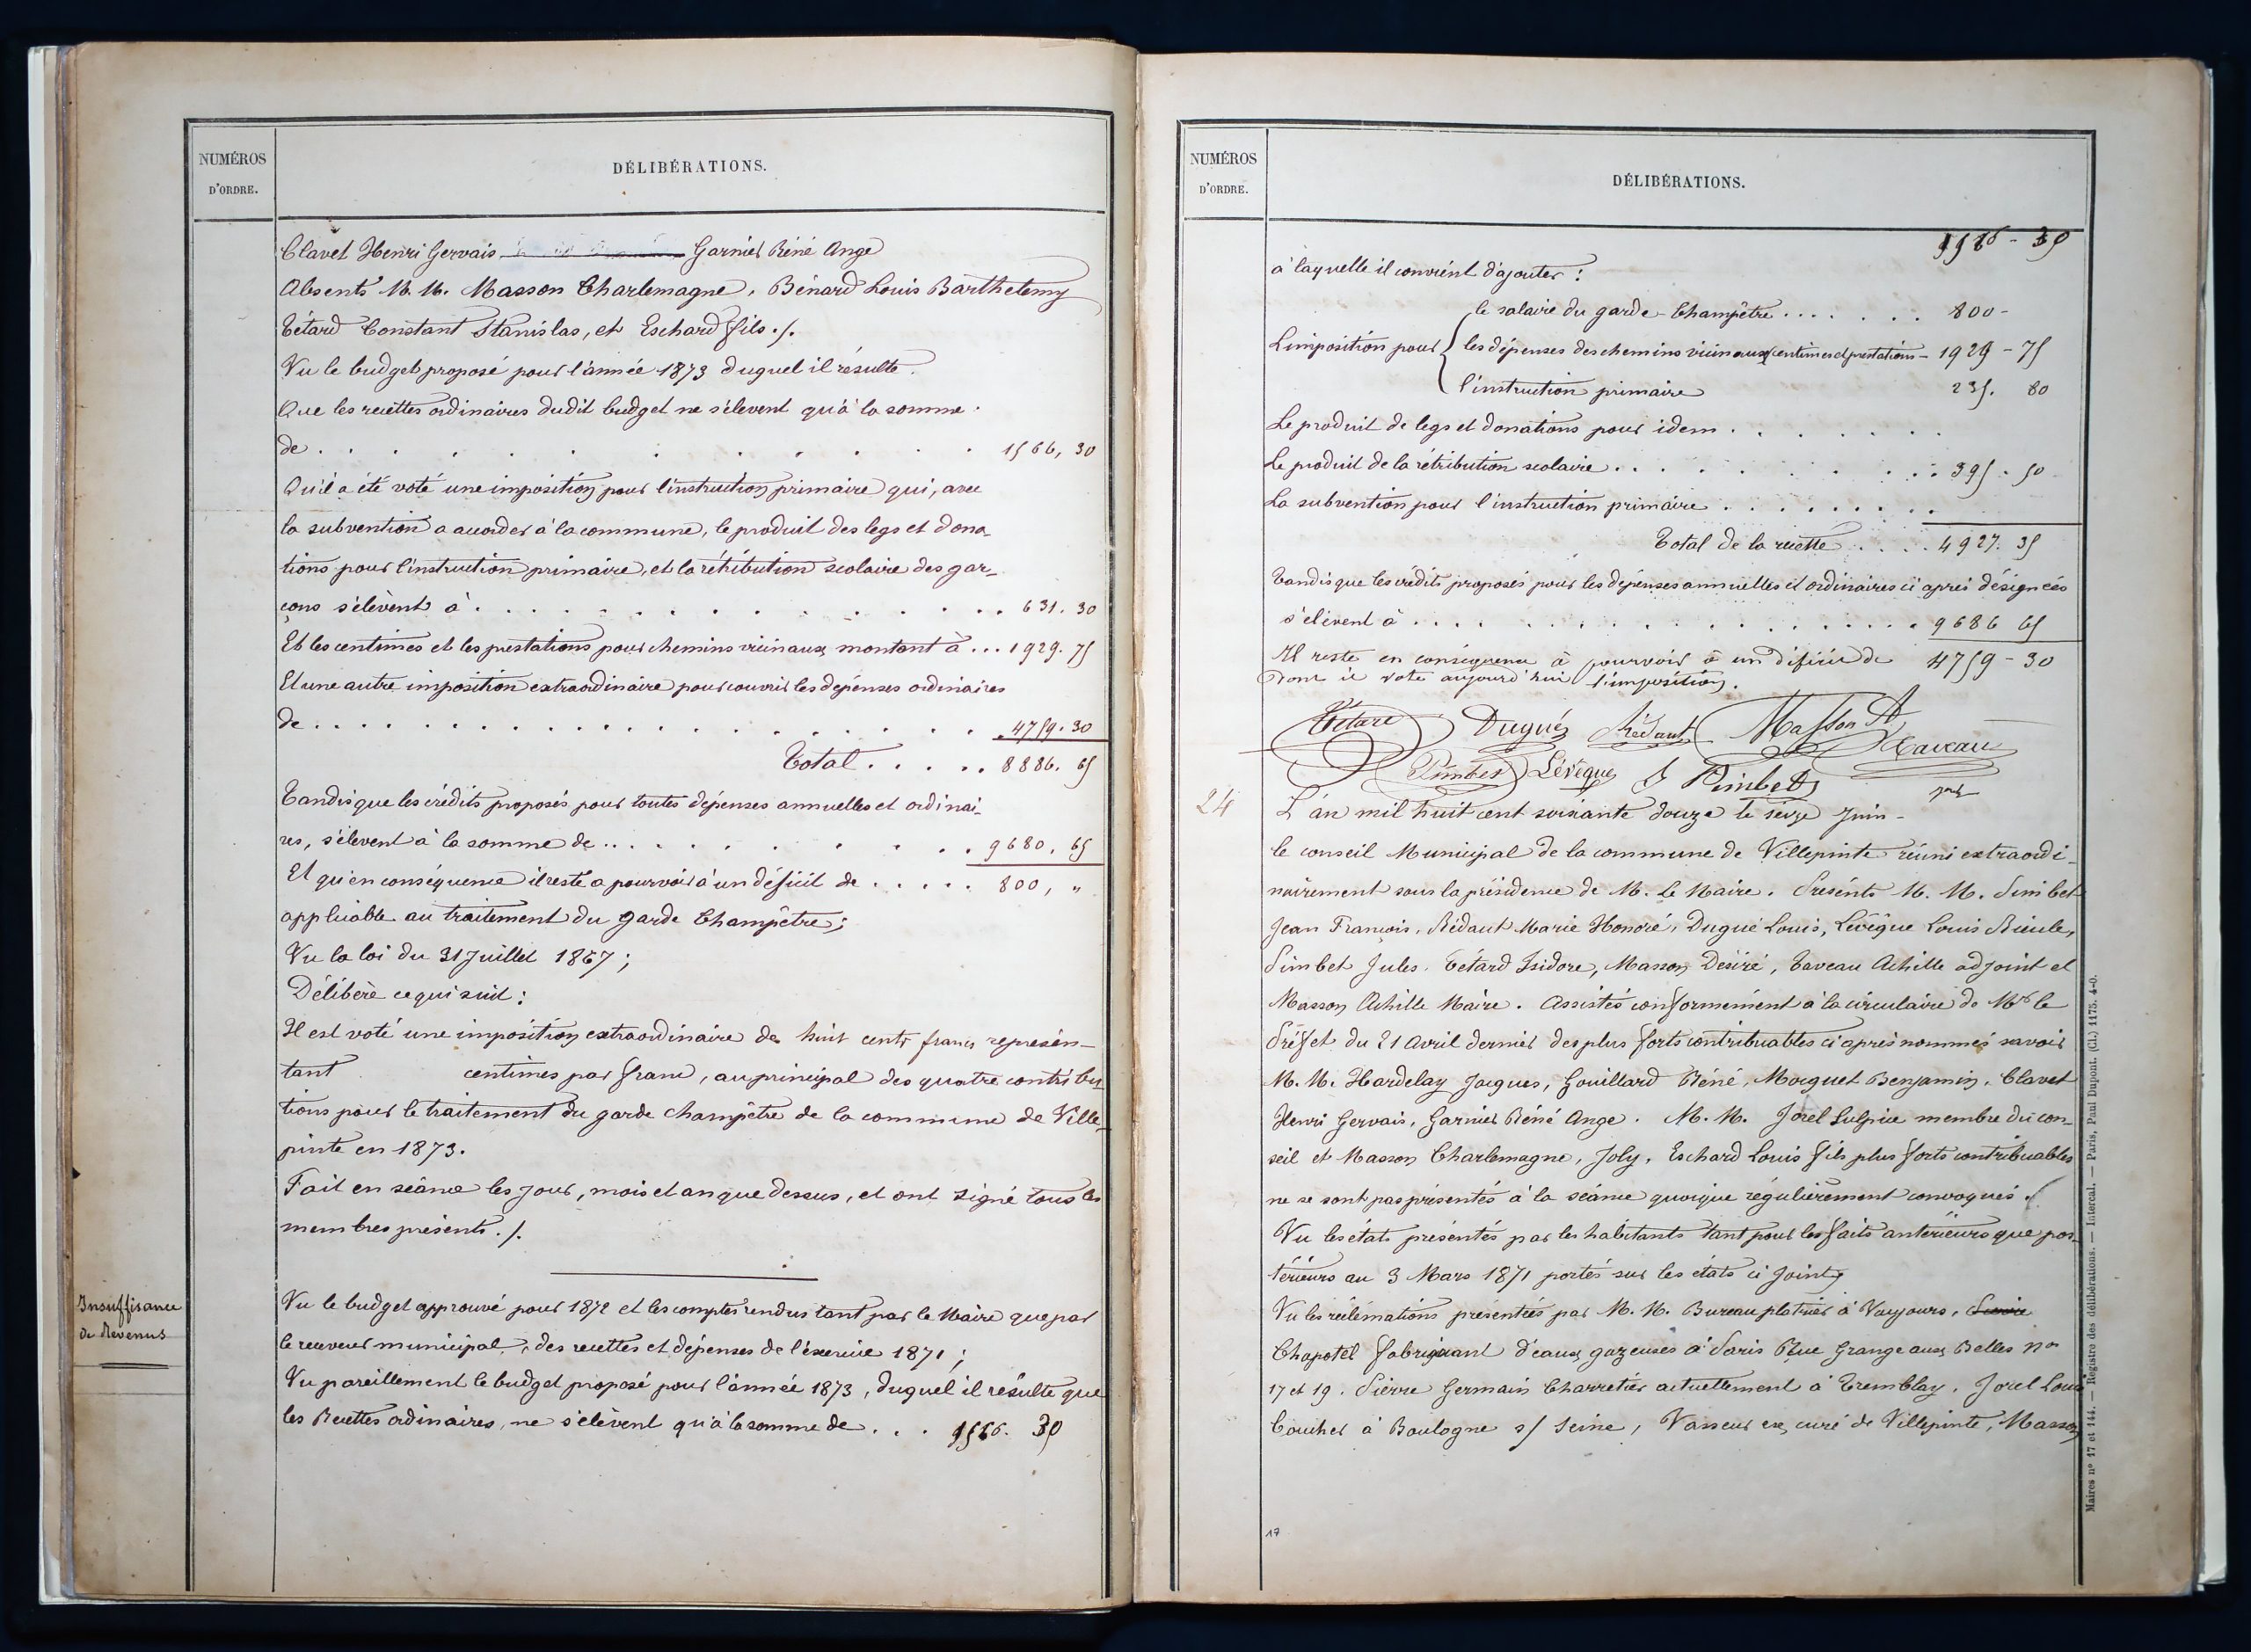 NUMÉROS
D'ORDRE.
DÉLIBÉRATIONS.
Clavet Henri Gervais Garnier Réné Ange
Absents M. M. Masson Charlemagne, Bénard Louis Barthelemy
Tétard Constant Stanislas, et Eschard fils ./.
Vu le budget proposé pour l'année 1873 duquel il résulte.
Que les recettes ordinaires dudit budget ne s'élevent qu'à la somme
de . . . . . . . . . . 1566, 30
Qu'il a été voté une imposition pour l'instruction primaire qui, avec
la subvention a accorder à la commune, le produit des legs et dona-
tions pour l'instruction primaire, et la rétribution scolaire des gar-
çons s'élèvent à . . . . . . . . . . 631. 30
Et les centimes et les prestations pour chemins vicinaux montant à ... 1929. 75
Et une autre imposition extraordinaire pour couvrir les dépenses ordinaires
de . . . . . . . . . . 4759. 30
Total . . . . . 8886. 65
Tandis que les crédits proposés pour toutes dépenses annuelles et ordinai-
res, s'élevent à la somme de . . . . . . . . 9680, 65
Et qu'en conséquence il reste a pourvoir à un déficit de . . . . . 800, "
applicable au traitement du garde Champêtre ;
Vu la loi du 31 Juillet 1867 ;
Délibère ce qui suit :
Il est voté une imposition extraordinaire de huit cents francs représen-
tant centimes par franc, au principal des quatre contribu-
tions pour le traitement du garde champêtre de la commune de Ville-
pinte en 1873.
Fait en séance les jour, mois et an que dessus, et ont signé tous les
membres présents ./.
Insuffisance
de Revenus
Vu le budget approuvé pour 1872 et les comptes rendus tant par le Maire que par
le receveur municipal, des recettes et dépenses de l'exercice 1871 ;
Vu pareillement le budget proposé pour l'année 1873, duquel il résulte que
les Recettes ordinaires, ne s'élèvent qu'à la somme de . . . 1566. 30
NUMÉROS
D'ORDRE.
DÉLIBÉRATIONS.
1566 - 30
à laquelle il convient d'ajouter :
le salaire du garde-Champêtre . . . . . . . 800 -
L'imposition pour les dépenses des chemins vicinaux centimes et prestations - 1929 - 75
l'instruction primaire 235. 80
Le produit de legs et donations pour idem . . . . . . .
Le produit de la rétribution scolaire . . . . . . . . . 395. 50
La subvention pour l'instruction primaire . . . . . . . . .
Total de la recette . . . . 4927. 35
Tandis que les crédits proposés pour les dépenses annuelles et ordinaires ci après désignées
s'élèvent à . . . . . . . . . . . . 9686 65
Il reste en conséquence à pourvoir à un déficit de 4759 - 30
Dont il vote aujourd'hui l'imposition.
Tétard Dugué Rédaut Masson A Taveau
Pimbet Lévêque J Pimbet
24
L'an mil huit cent soixante douze le seize Juin -
le conseil Municipal de la commune de Villepinte réuni extraordi-
nairement sous la présidence de M. le Maire. Présents M. M. Pimbet
Jean François, Rédaut Marie Honoré, Dugué Louis, Lévêque Louis Rieule,
Pimbet Jules, Tétard Isidore, Masson Désiré, Taveau Achille adjoint et
Masson Achille Maire. Assistés conformément à la circulaire de Mr le
Préfet du 21 Avril dernier des plus forts contribuables ci après nommés savoir
M. M. Hardelay Jacques, Gouillard Réné, Moiguet Benjamin, Clavet
Henri Gervais, Garnier Réné Ange. M. M. Jorel Sulpice membre du con-
seil et Masson Charlemagne, Joly, Eschard Louis fils plus forts contribuables
ne se sont pas présentés à la séance quoique régulièrement convoqués ./.
Vu les états présentés par les habitants tant pour les faits antérieurs que pos-
térieurs au 3 Mars 1871 portés sur les états ci joints
Vu les réclamations présentées par M. M. Bureau platrier à Vaujours,
Chapotel fabriquant d'eaux gazeuses à Paris Rue Grange aux Belles nos
17 et 19. Pierre Germain Charretier actuellement à Tremblay. Jorel Louis
Boucher à Boulogne s/ Seine, Vasseur ex curé de Villepinte, Masson
17
Maires nº 17 et 144. — Registre des délibérations. — Intercal. — Paris, Paul Dupont. (Cl.) 1175. 4-0.